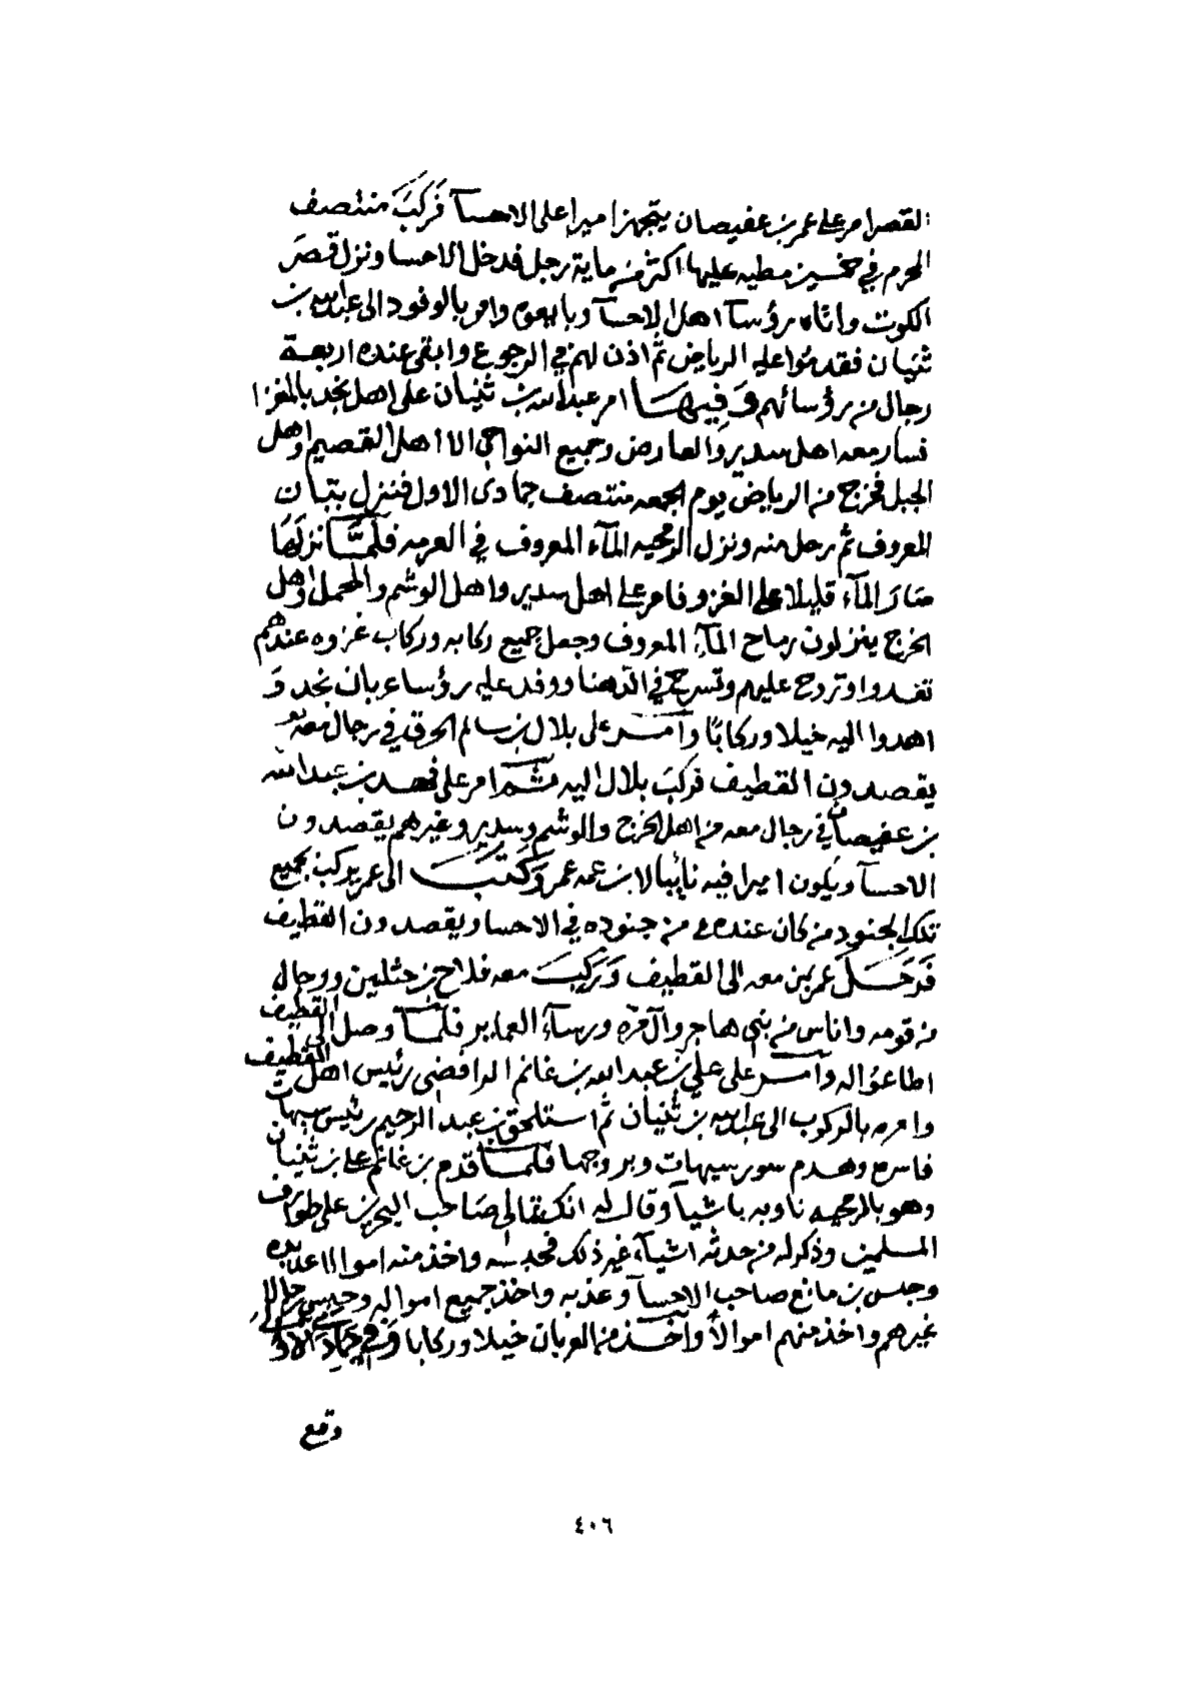 القصر امر على عمر بن عفيصان يتجهز اميرا على الاحسآ فركبَ منتصف
المحرم في خمسين مطيه عليها اكثر من ماية رجل فدخل الاحسا ونزل قصَر
الكوت واتاه رؤسآ اهل الاحسآ وبايعوه وامر بالوفود الى عبدالله بن
ثنيان فقدموا عليه الرياض ثم اذن لهم في الرجوع وابقى عنده اربعة
رجال من رؤسائهم وَفِيهَا امر عبدالله بن ثنيان على اهل نجد بالمغزا
فسار معه اهل سدير والعارض وجميع النواحي الا اهل القصيم واهل
الجبل فخرج من الرياض يوم الجمعه منتصف جمادى الاول فنزل بنبان
المعروف ثم رحل منه ونزل الرمحيه المآء المعروف في العرمه فلَمَّا نزلَهَا
صَارَ المآء قليلا على الغزو فامر على اهل سدير واهل الوشم والمحمل واهل
الخرج ينزلون رماح المآء المعروف وجعل جميع ركابه وركاب غزوه عندهم
تغدوا وتروح عليهم وتسرح في الدهنا ووفد عليه رؤساء عربان نجد وَ
اهدوا اليه خيلا وركابًا وآمَر على بلال بن سالم الحرق في رجال معه
يقصدون القطيف فركبَ بلال اليه ثُمَّ امر على فهد بن عبدالله
بن عفيصان في رجال معه من اهل الخرج والوشم وسدير وغيرهم يقصدون
الاحسآ ويكون اميرا فيه نايبا لابن عمه عمر وَكَتَبَ الى عمر يركب بجميع
تلك الجنود من كان عنده من جنوده في الاحسا ويقصدون القطيف
فَدَخَلَ عمر بمن معه الى القطيف وَرَكِبَ معه فلاح بن حثلين ورجال
من قومه واناس من بني هاجر وآل مره ورسآء العماير فلمّا وصل الى القطيف
اطاعوا له وآمَر على علي بن عبدالله بن غانم الرافضى رئيس اهل القطيف
وامره بالركوب الى عبدالله بن ثنيان ثم استلحق بن عبد الرحيم رئيس سيهات
فاسره وهدم سور سيهات وبروجها فلمّا قدم بن غانم على بن ثنيان
وهو بالرمحيه نادبه باشيآ وقال له انك تقالى صَاحب البحرين على طوارف
المسلمين وذكر له من حدثه اشيآء غير ذلك فحبسه واخذ منه اموالا عديده
وحبس بن مانع صاحب الاحسآ وعذبه واخذ جميع امواله وحبس رجالا
غيرهم واخذ منهم اموالاً وآخَذ من العربان خيلا وركابا وَفي جماد الاول
وقع
٤٠٦